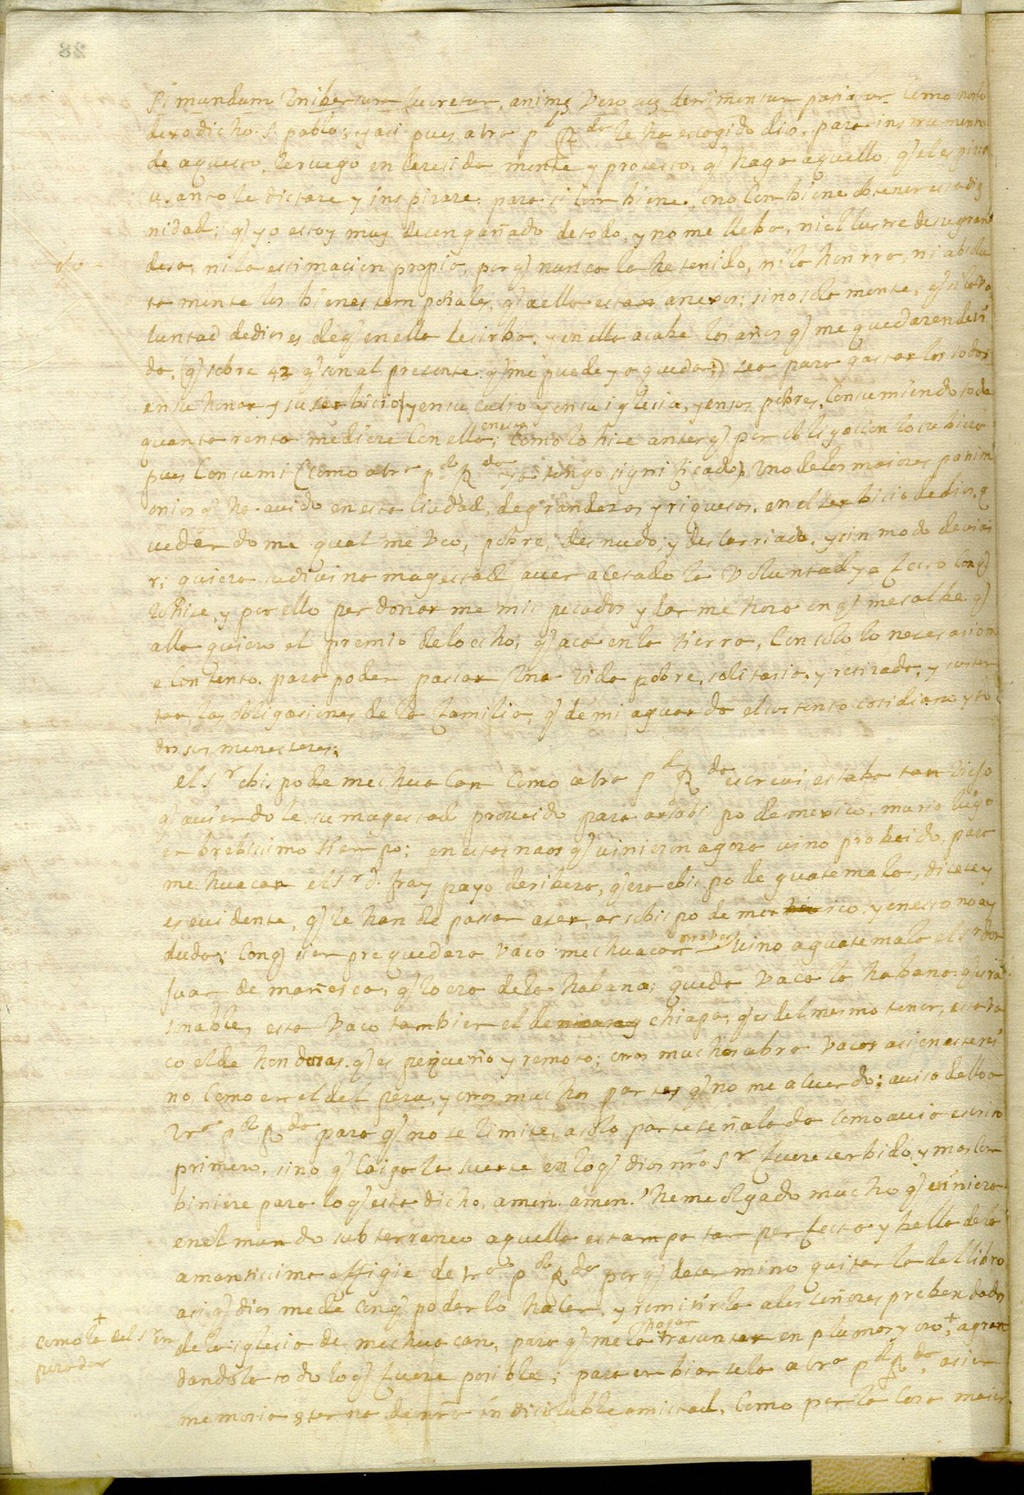 28
si mundum universum lucretur, animę vero suę detrimentum patiatur. como nos lo
dexo dicho S. pablo; y asi pues a bra pd Rda le ha escogido dios, para instrumento
de aquesto, le ruego enteresida mente y protesto, q haga aquello, q el espirit
u santo le dictare y inspirare, para si conbiene, o no conbiene obtener esta dig
nidad; q yo estoy muy desengañado de todo, y no me lleba, ni el lustre de su gran
desa, ni la estimacion propia, porq nunca la he tenido, ni la honrra, ni absolu
ta mente los bienes temporales, q a ella estan anexos; sino sola mente, q si la vo
luntad de dios es de q en ella le sirba, y en ella acabe los años q me quedaren de vi
da, (q sobre 42 q son al presente q me puede ya quedar?) sea para gastarlos todos
en su honor y su serbicio, y en su culto y en su iglesia, y en sus pobres, consumiendo toda
quanta renta me diere con ella en esto; como lo hise antes q por obligacion lo tubiera
pues consumi (como a bra pd Rda ya tengo significado) uno de los maiores patrim
onios q ha auido en esta ciudad, de grandezas y riquesas, en el serbicio de dios, q
uedandome qual me veo, pobre, desnudo, y descarriado, y sin modo de
r; quiera su divina magestad aver acetado la voluntad y a con q
lo hise, y por ello perdonarme mis pecados y darme hora en q me salbe q
alla quiero el premio de lo echo; q aca en la tierra, con solo lo necesario m
e contento, para poder passar una vida pobre, solitaria, y retirada, y susten
tar, las obligasiones de la familia, q de mi aguarda el sustento cotidiano y to
dos sus menesteres;
el Sr obispo de mechuacan como a bra pd Rda escreui, estaba tan viejo
q aviendole su magestad proveido para arsobispo de mexico, murio luego
en brebissimo tiempo; en estas naos q vinieron agora vino probeido, para
mechuacan el Sr d. fray payo de ribera, q era obispo de guatemala, disese y
es evidente, q le han de passar a ser, arsobispo de mexico, y en esto no ay
duda; con q siempre quedara vaco mechuacan; vino a guatemala el Sr don
Juan de mañosca, q lo era de la habana; queda vaca la habana q es ra
sonable, esta vaco tambien el de chiapa, q es del mesmo tener, esta va
co el de honduras, q es pequeño y remoto; otros muchos abra vacos asi en este rei
no, como en el del peru, y otras muchas partes q no me acuerdo; aviso dello a
vra pd Rda para q no se limite, a sola parte señalada como avia escrito
primero, sino q caiga la suerte en lo q dios nro Sr fuere serbido, y mas con
biniere para lo q esta dicho, amen amen. heme olgado mucho q viniera
en el mundo subterraneo aquella estampa tan perfecta y bella de la
amantissima effigie de vra pd Rda porq determino quitarla del libro
asi q dios me de con q poderlo haser, y remitirla a los señores prebendados
de la iglesia de mechuacan, para q me la hagan trasuntar en plumas y oro,+ agran
dandola todo lo q fuere posible; para enbiarsela a bra pd Rda, asi en
memoria eterna de nra indisoluble amistad, como por la cosa maior
+
como la del Sr em
perador